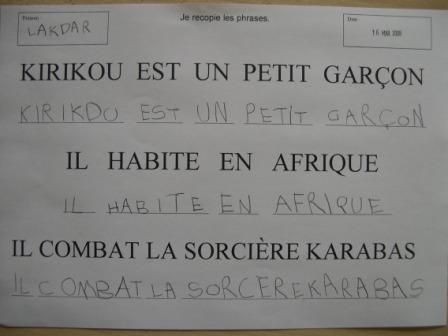 Je recopie les phrases.
Prénom :
LAKDAR
Date :
16 MAR 2009
KIRIKOU EST UN PETIT GARÇON
KIRIKOU EST UN PETIT GARÇON
IL HABITE EN AFRIQUE
IL HABITE EN AFRIQUE
IL COMBAT LA SORCIÈRE KARABAS
IL COMBAT LA SORCEREKARABAS